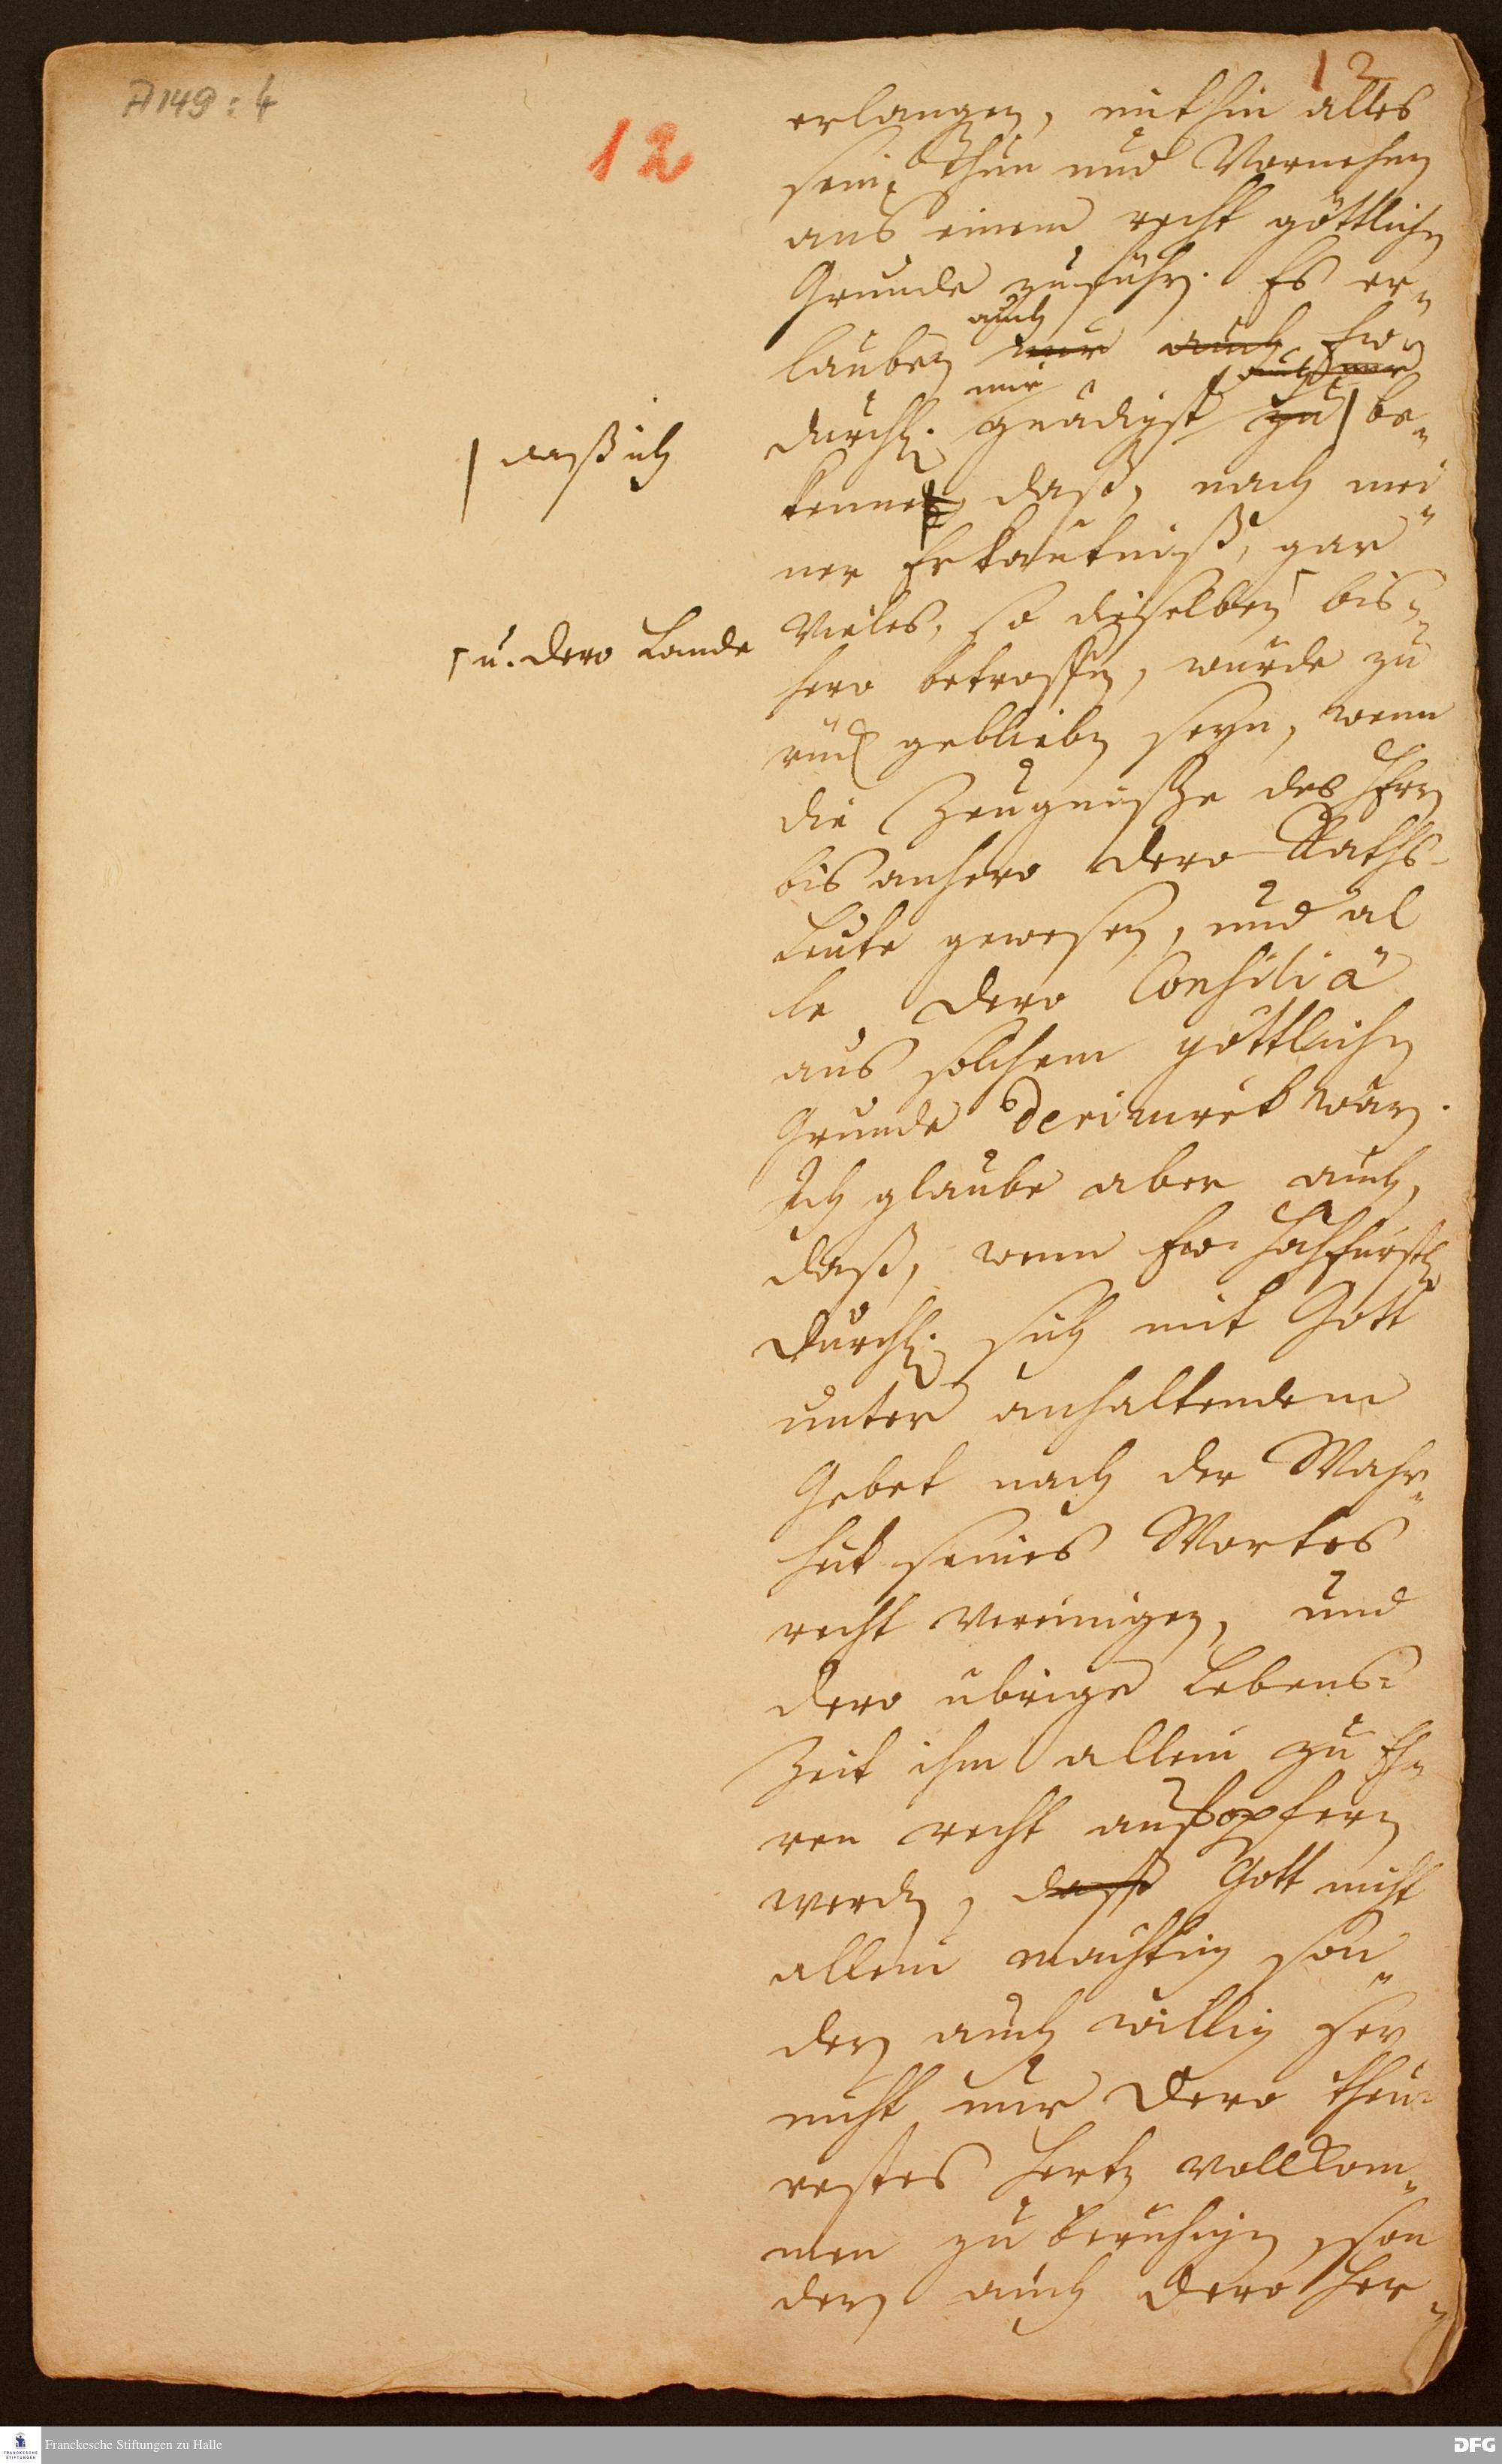 A 149 : 4
12
12
erlangen, mithin alles
sein Thun und Vornehmen
aus einem recht göttlichen
Grunde zuführen. Es er-
lauben nur auch Ew.
auch
mir
auch mir
durchl. gnädigst zu | be-
| daß ich
kennen daß, nach mei
ner Erkäntniß, gar
vieles, so dieselben ⌈ bis-
⌈ u. dero Lande
hero betroffen, würde zu
rück geblieben seyn, wenn
die Zeugnisse des HErrn
bis anhero dero Raths-
Leute gewesen, und al
le dero Consilia
aus solchem göttlichen
Grunde deriviret wären.
Ich glaube aber auch,
daß, wenn Ew. Hochfürstl.
Durchl. sich mit Gott
unter anhaltendem
Gebet nach der Wahr-
heit seines Wortes
recht vereinigen, und
dero übrige Lebens-
Zeit ihm allein zu Eh-
ren recht aufopfern
werden, daß Gott nicht
allein mächtig son-
dern auch willig sey
nicht nur Dero theu-
restes Hertz vollkom-
men zu beruhigen, son
dern auch Dero Her-
Franckesche Stiftungen zu Halle
DFG